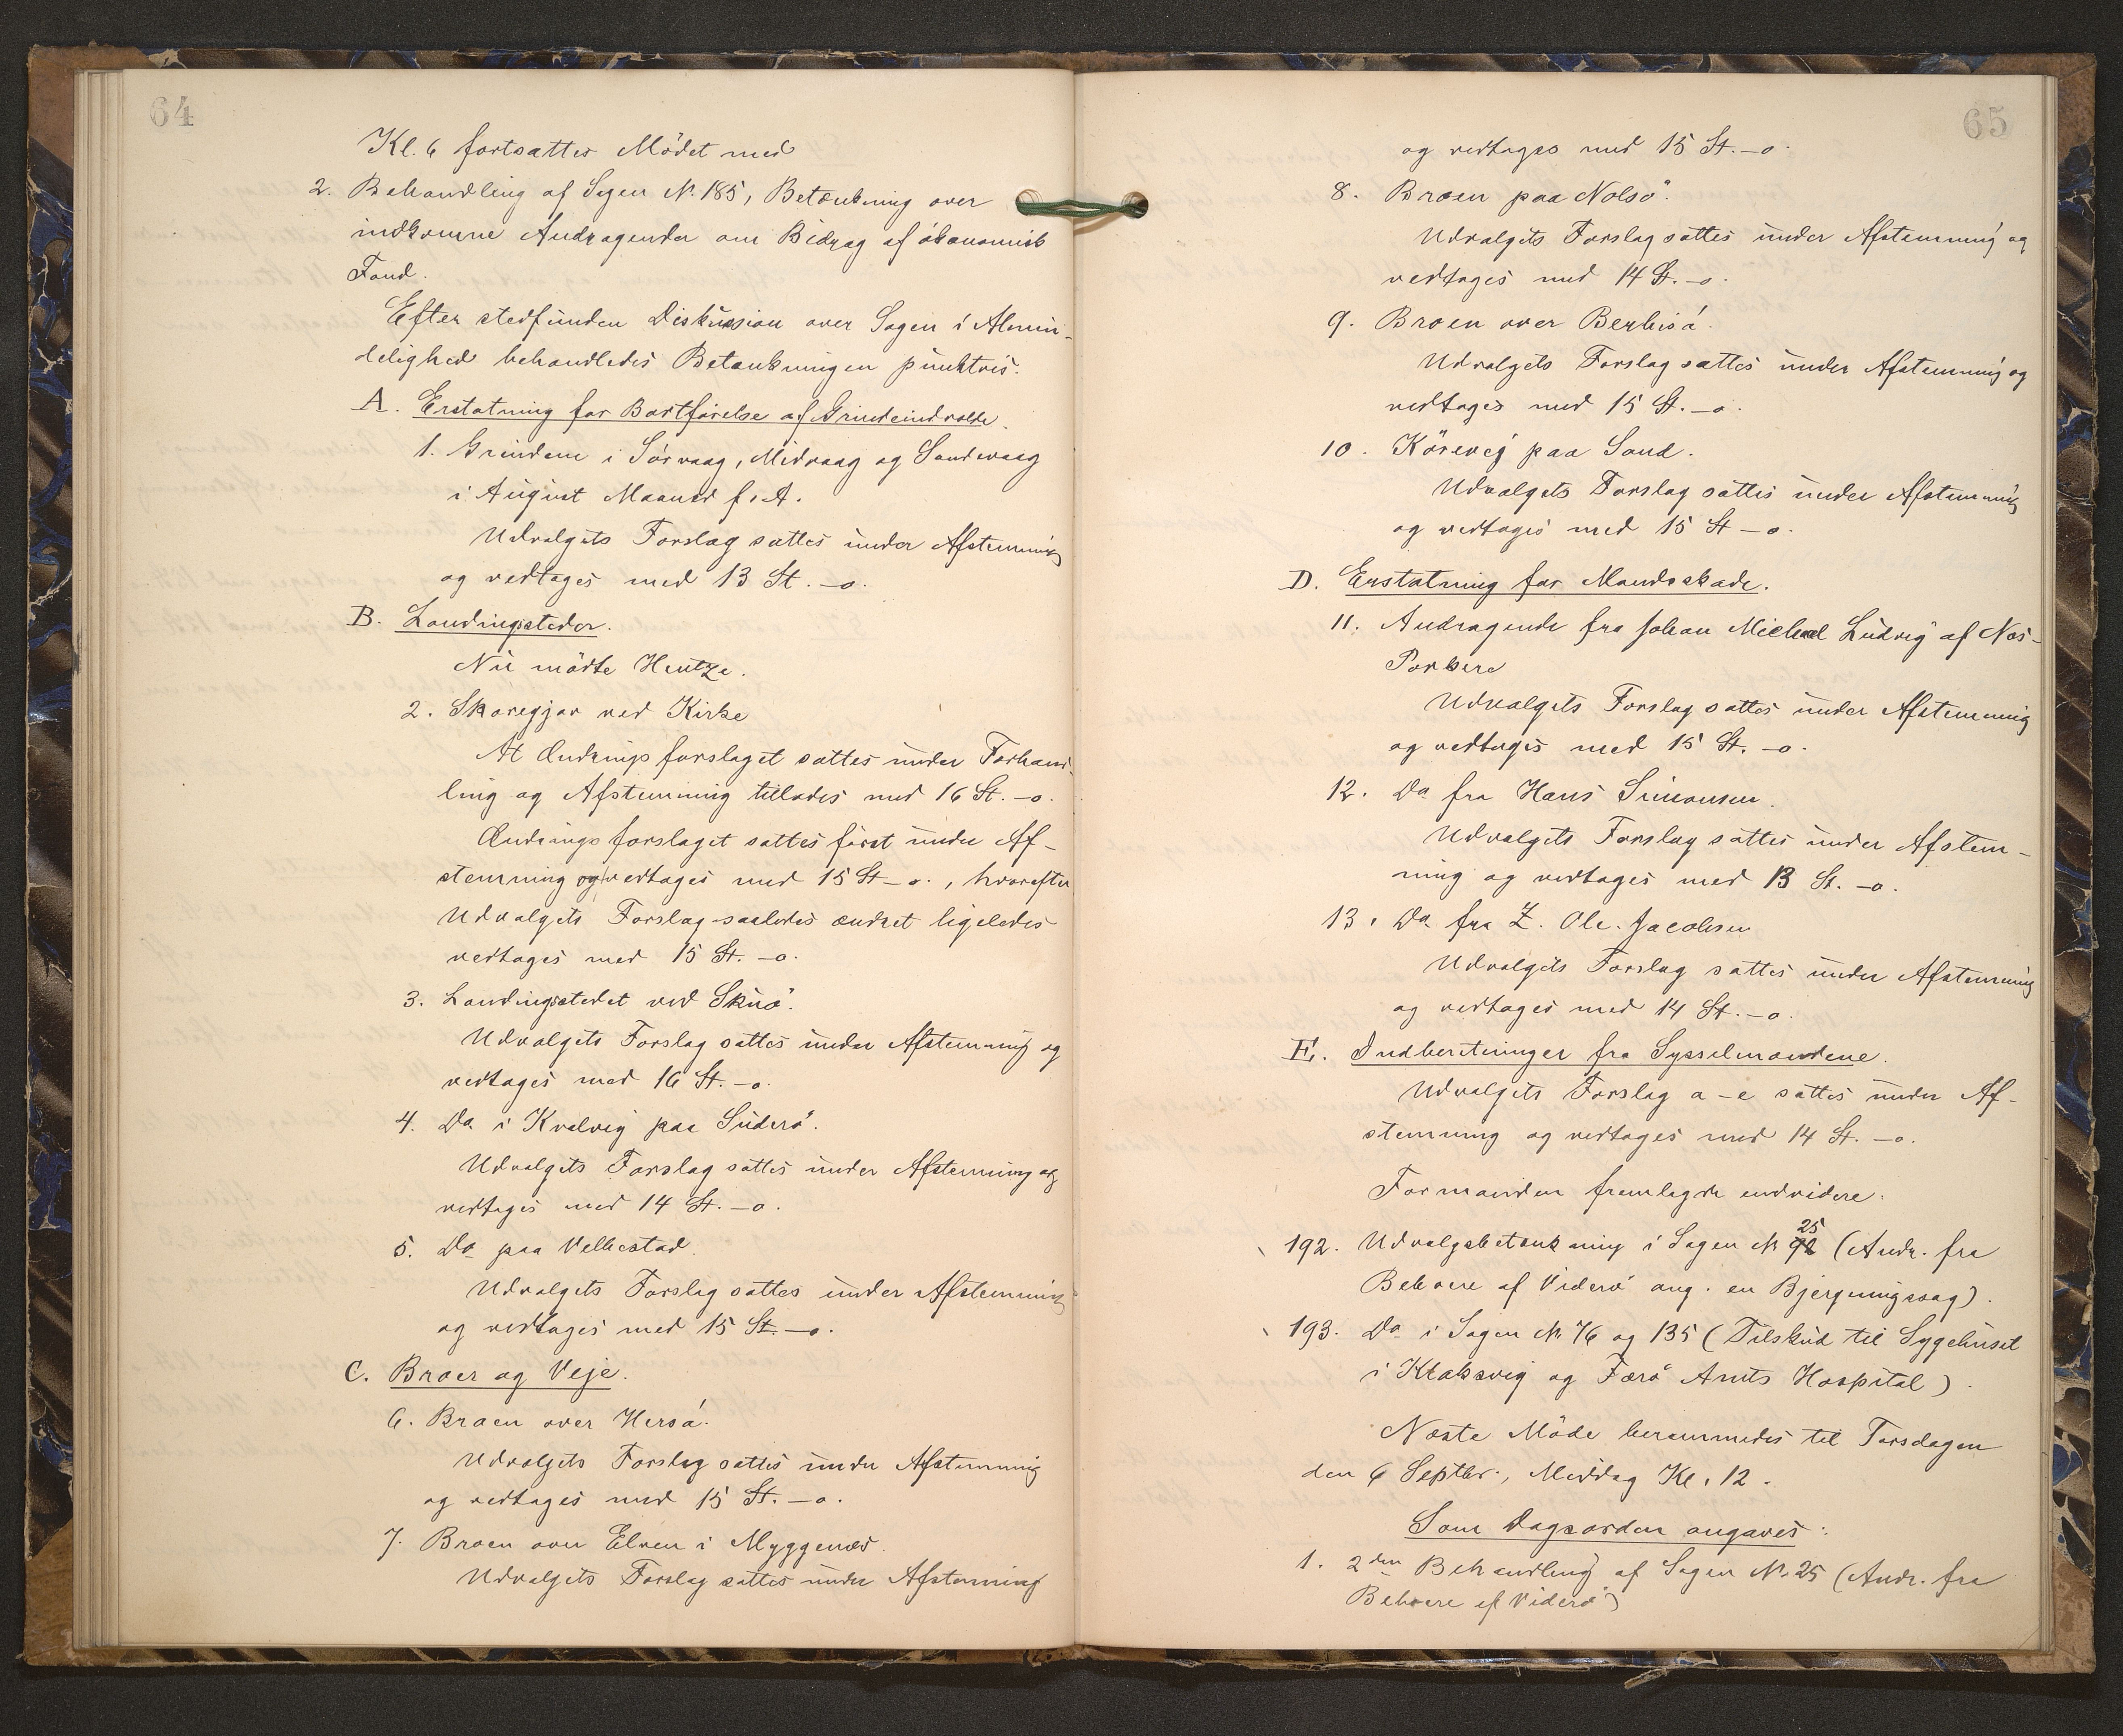 64
Kl. 6 fortsattes Mödet med
2. Behandling af Sagen N. 185, Betænkning over
indkomne Andragender om Bidrag af ökonomisk
Fond.
Efter stedfunden Diskussion over Sagen i Almin-
delighed behandledes Betænkningen punktvis.
A. Erstatning for Bortförelse af Grindeindvolde.
1. Grindene i Sörvaag, Midvaag og Sandevaag
i August Maaned f. A.
Udvalgets Forslag sattes under Afstemning
og vedtages med 13 St. -o.
B. Landingssteder.
Nu mödte Hentze.
2. Skaregjov ved Kirke
At Ændringsforslaget sattes under Forhand-
ling og Afstemning tillodes med 16 St. -o.
Ændringsforslaget sattes först under Af-
stemning og vedtages med 15 St -o., hvorefter
Udvalgets Forslag saaledes ændret ligeledes
vedtages med 15 St. -o.
3. Landingsstedet ved Skuö.
Udvalgets Forslag sattes under Afstemning og
vedtages med 16 St. -o.
4. Do i Kvalvig paa Suderö.
Udvalgets Forslag sattes under Afstemning og
vedtages med 14 St. -o.
5. Do paa Velbestad.
Udvalgets Forslag sattes under Afstemning
og vedtages med 15 St. -o.
C. Broer og Veje.
6. Broen over Hersá.
Udvalgets Forslag sattes under Afstemning
og vedtages med 15 St. -o.
7. Broen over Elven i Myggenæs.
Udvalgets Forslag sattes under Afstemning
65
og vedtages med 15 St. -o.
8. Broen paa Nolsö.
Udvalgets Forslag sattes under Afstemning og
vedtages med 14 St. -o.
9. Broen over Berbisá.
Udvalgets Forslag sattes under Afstemning og
vedtages med 15 St. -o.
10. Körevej paa Sand.
Udvalgets Forslag sattes under Afstemning
og vedtages med 15 St -o.
D. Erstatning for Mandsskade.
11. Andragende fra Johan Michael Ludvig af Næs-
Porkere
Udvalgets Forslag sattes under Afstemning
og vedtages med 15 St. -o.
12. Do fra Hans Simonsen.
Udvalgets Forslag sattes under Afstem-
ning og vedtages med 13 St. -o.
13. Do fra Z. Ole. Jacobsen
Udvalgets Forslag sattes under Afstemning
og vedtages med 14 St. -o.
E. Indberetninger fra Sysselmændene.
Udvalgets Forslag a-e sattes under Af-
stemning og vedtages med 14 St. -o.
Formanden fremlagde endvidere:
192. Udvalgsbetænkning i Sagen N. 25 (Andr. fra
Beboere af Viderö ang. en Bjergningssag).
193. Do i Sagen N. 76 og 135 (Tilskud til Sygehuset
i Klaksvig og Færö Amts Hospital).
Næste Möde berammedes til Torsdagen
den 6 Septbr., Middag Kl. 12.
Som Dagsorden angaves:
1. 2den Behandling af Sagen N. 25 (Andr. fra
Beboere af Viderö)